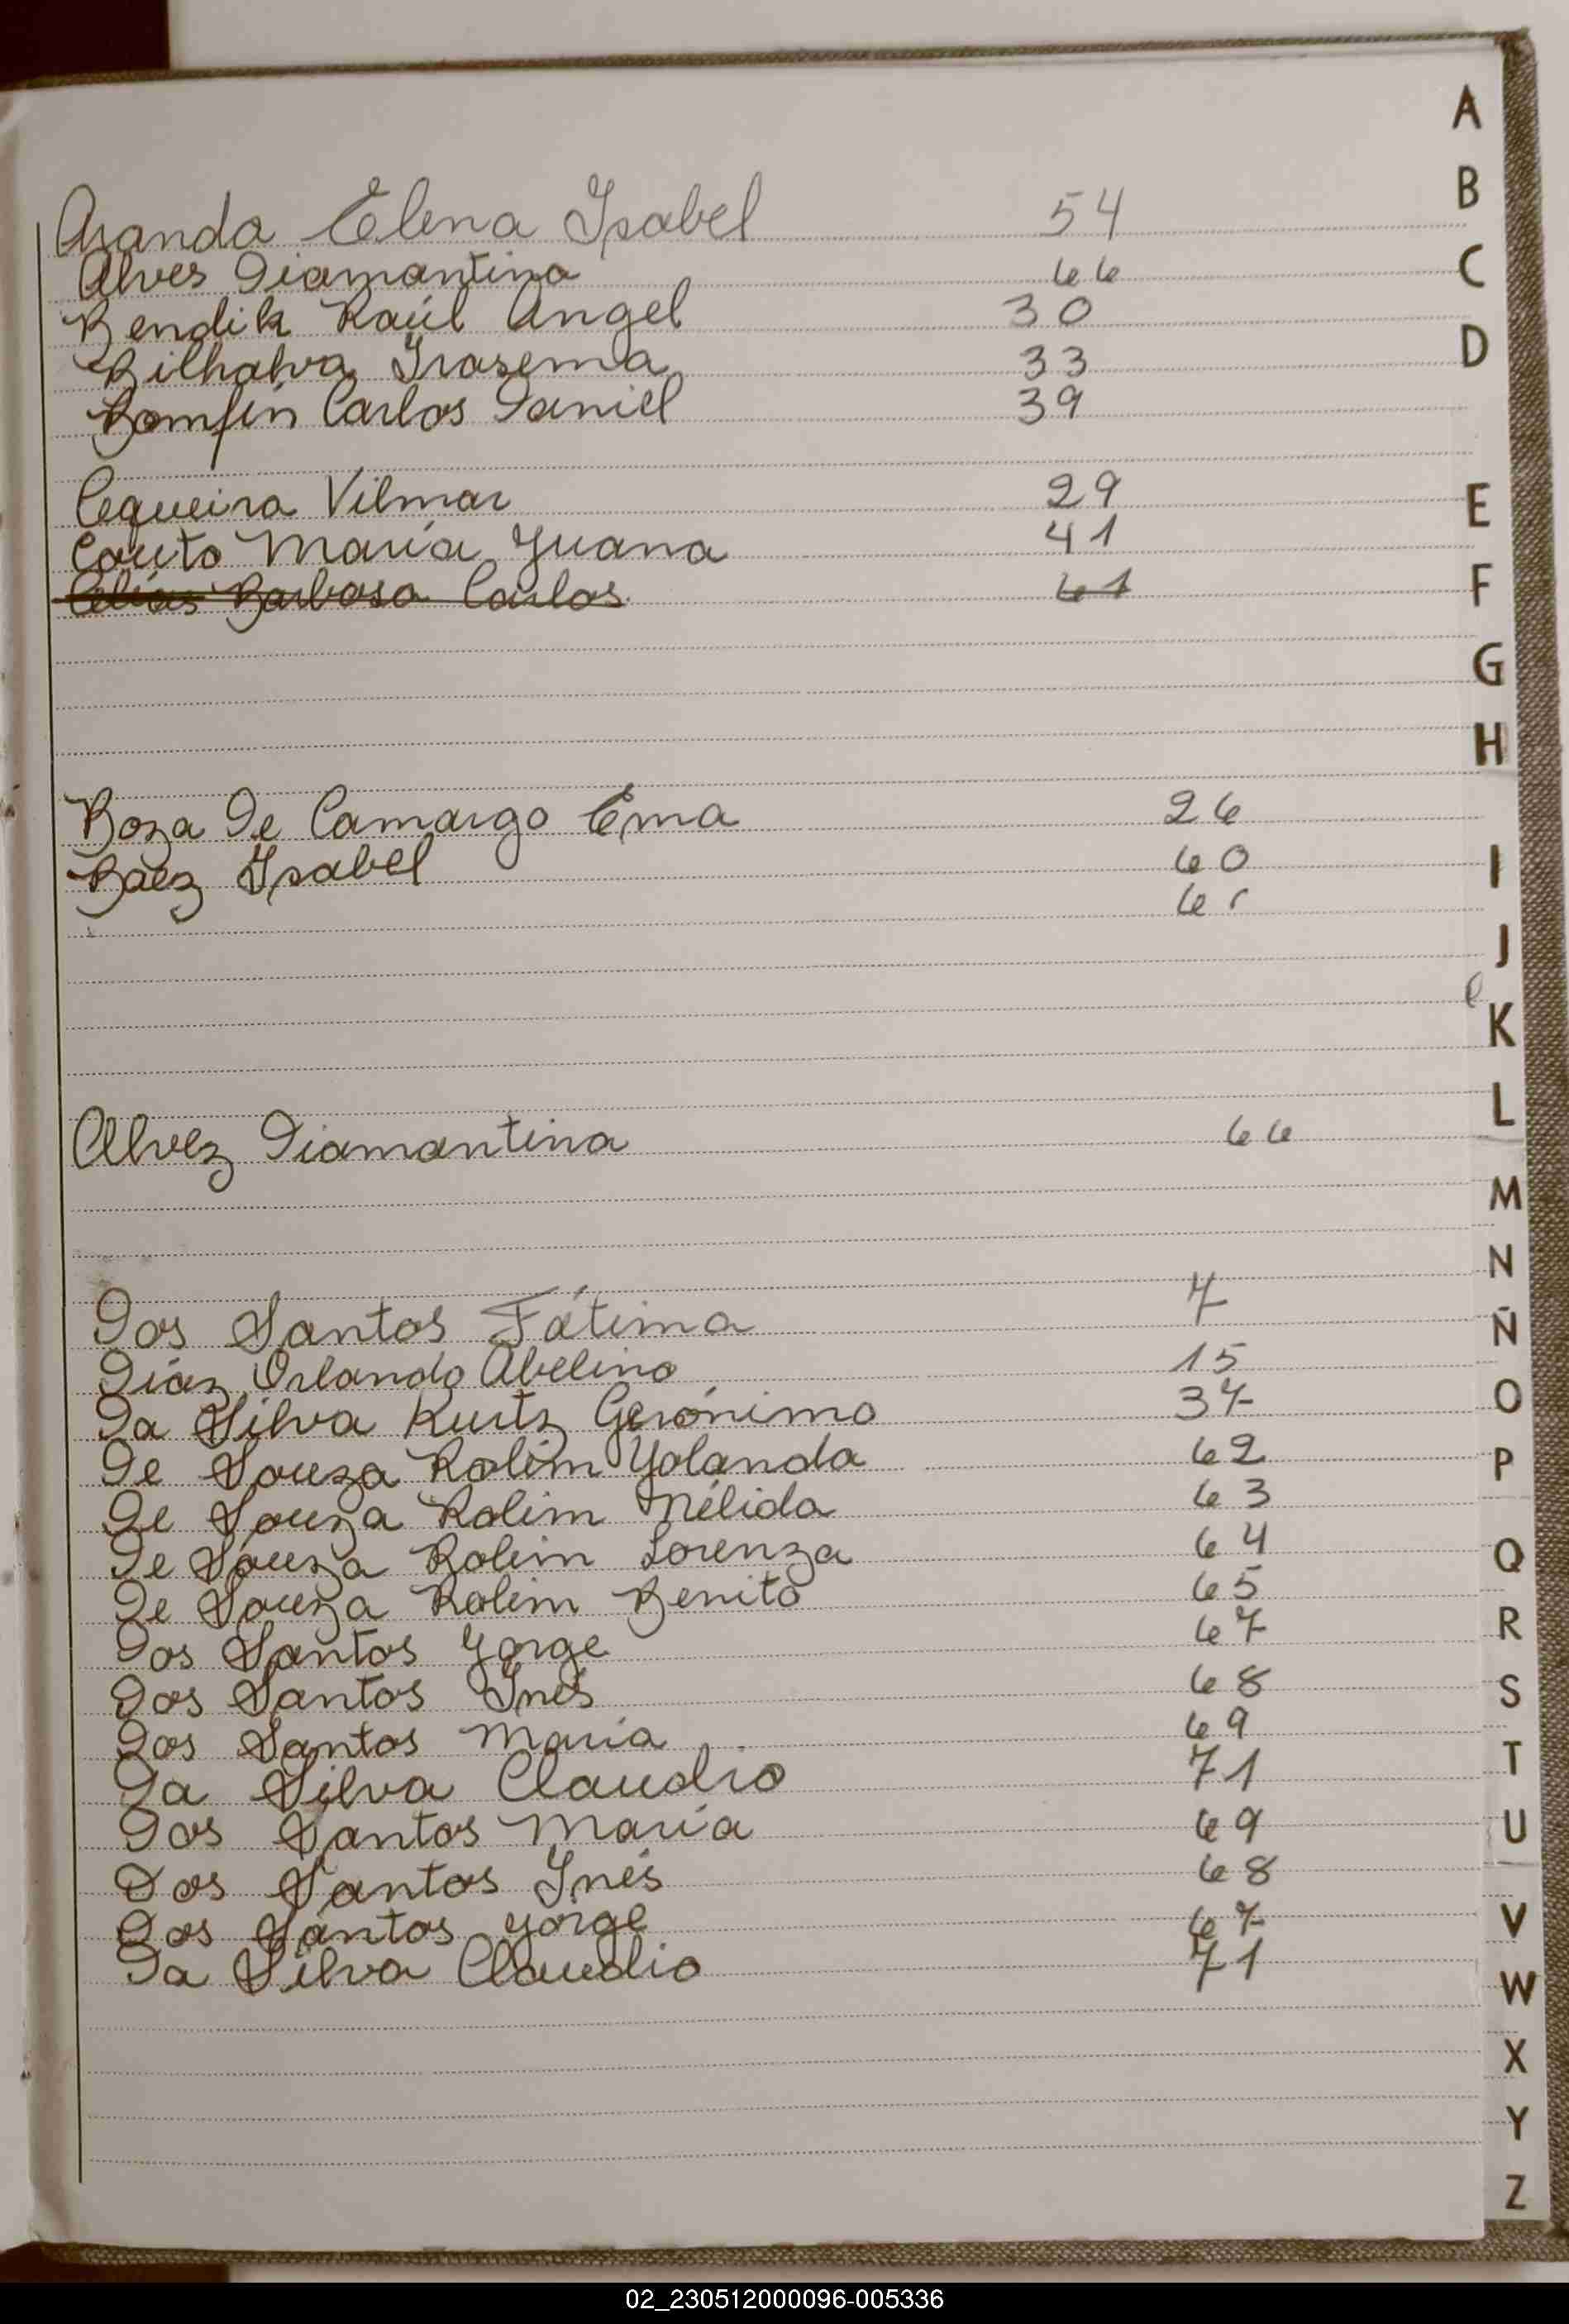 A
Aranda Elena Isabel 54
B
Alves Diamantina 66
C
Bendik Raúl Angel 30
Bilhalva Irasema 33
D
Bomfin Carlos Daniel 39
Cequeira Vilmar 29
E
Couto María Juana 41
Barbosa Carlos 61
F
G
H
Boza De Camargo Ema 26
Báez Isabel 60
I
6
J
K
L
Alvez Diamantina 66
M
N
Dos Santos Fátima 7
Ñ
Díaz Orlando Abelino 15
Da Silva Kurtz Gerónimo 37
O
De Souza Rolim Yolanda 62
P
De Souza Rolim Nélida 63
De Souza Rolim Lorenza 64
Q
De Souza Rolim Benito 65
Dos Santos Jorge 67
R
Dos Santos Inés 68
S
Dos Santos María 69
Da Silva Claudio 71
T
Dos Santos María 69
U
Dos Santos Inés 68
Dos Santos Jorge 67
V
Da Silva Claudio 71
W
X
Y
Z
02_230512000096-005336